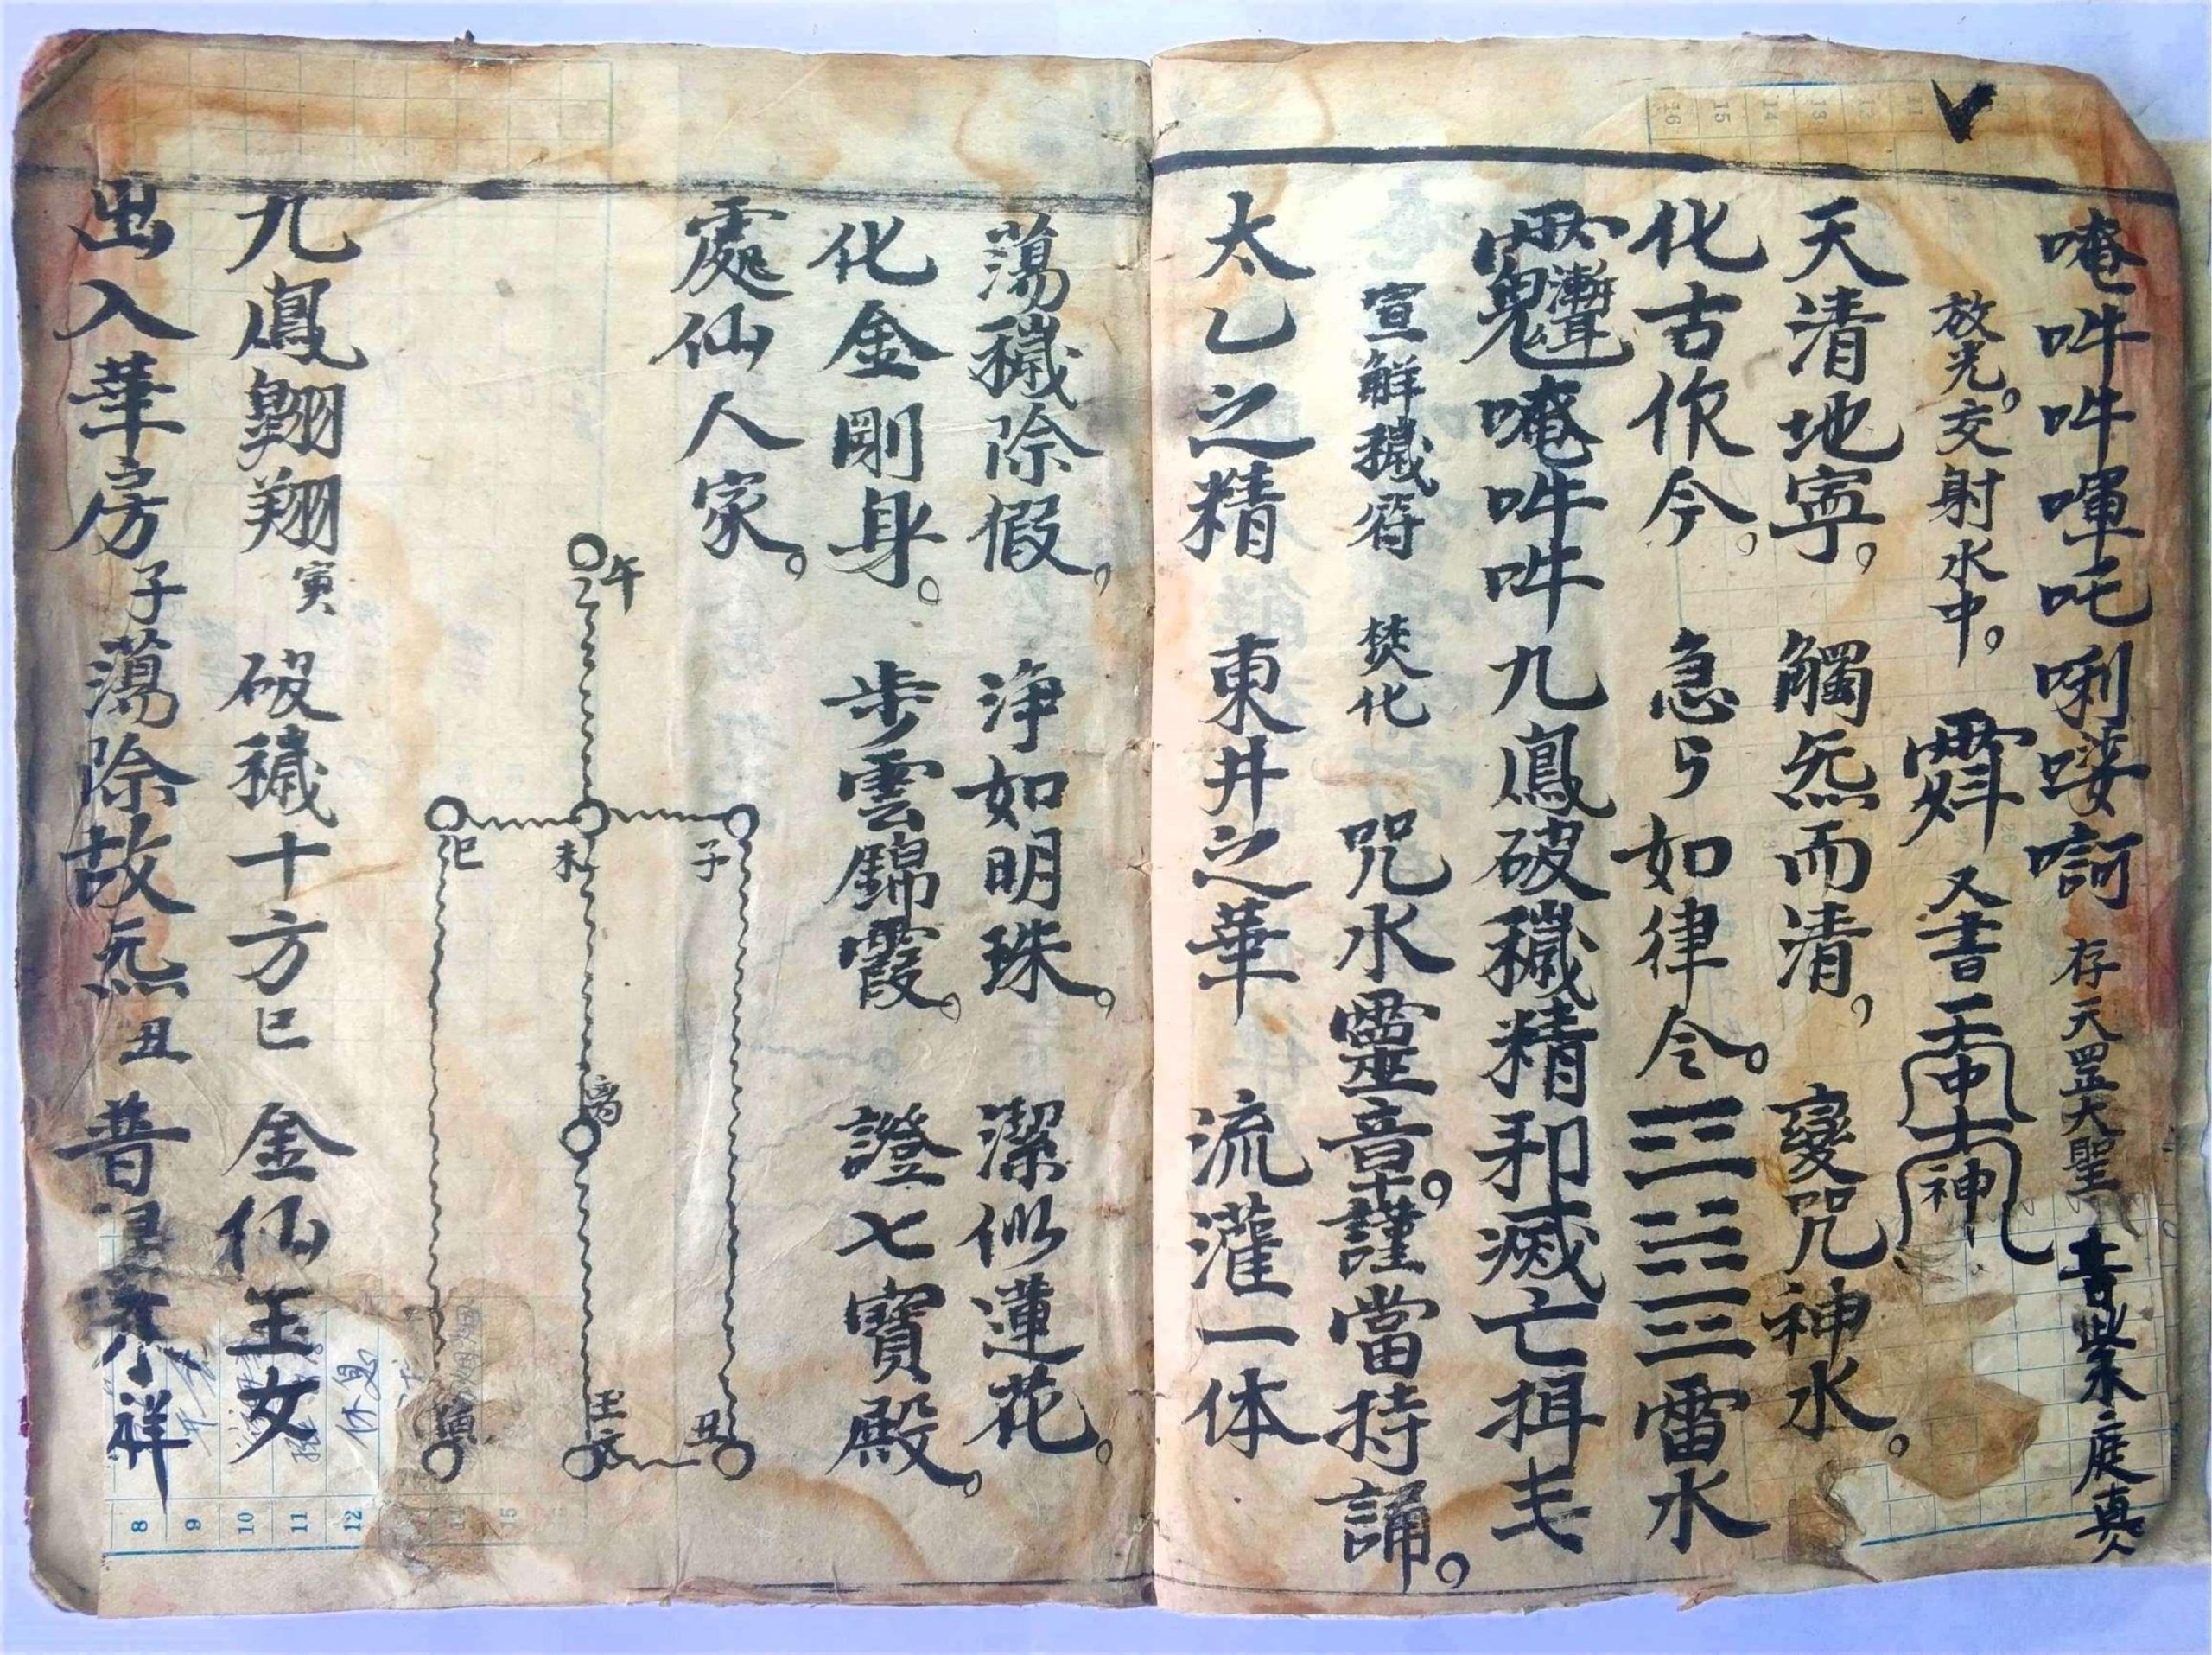 唵吽吽喗吒唎𠹌啊 存天罡大聖 書紫禾庭真人
放光。交射水中。 又書 中 神
天清地寧。 觸炁而清。 變咒神水。
化古作今。 急丂如律令。 雷水
唵吽吽九鳳破穢精邪滅亡揖
宣解穢符 焚化 咒水靈章。謹當持誦。
太乙之精 東井之華 流灌一体
蕩穢除假。 淨如明珠。 潔似蓮花。
化金剛身。 步雲錦霞。 證七寶殿。
處仙人家。
午
巳 未 子
丑
九鳳翱翔寅 破穢十方巳 金仙玉女
出入華房子 蕩除故炁丑 普 祥
8 9 10 11 12